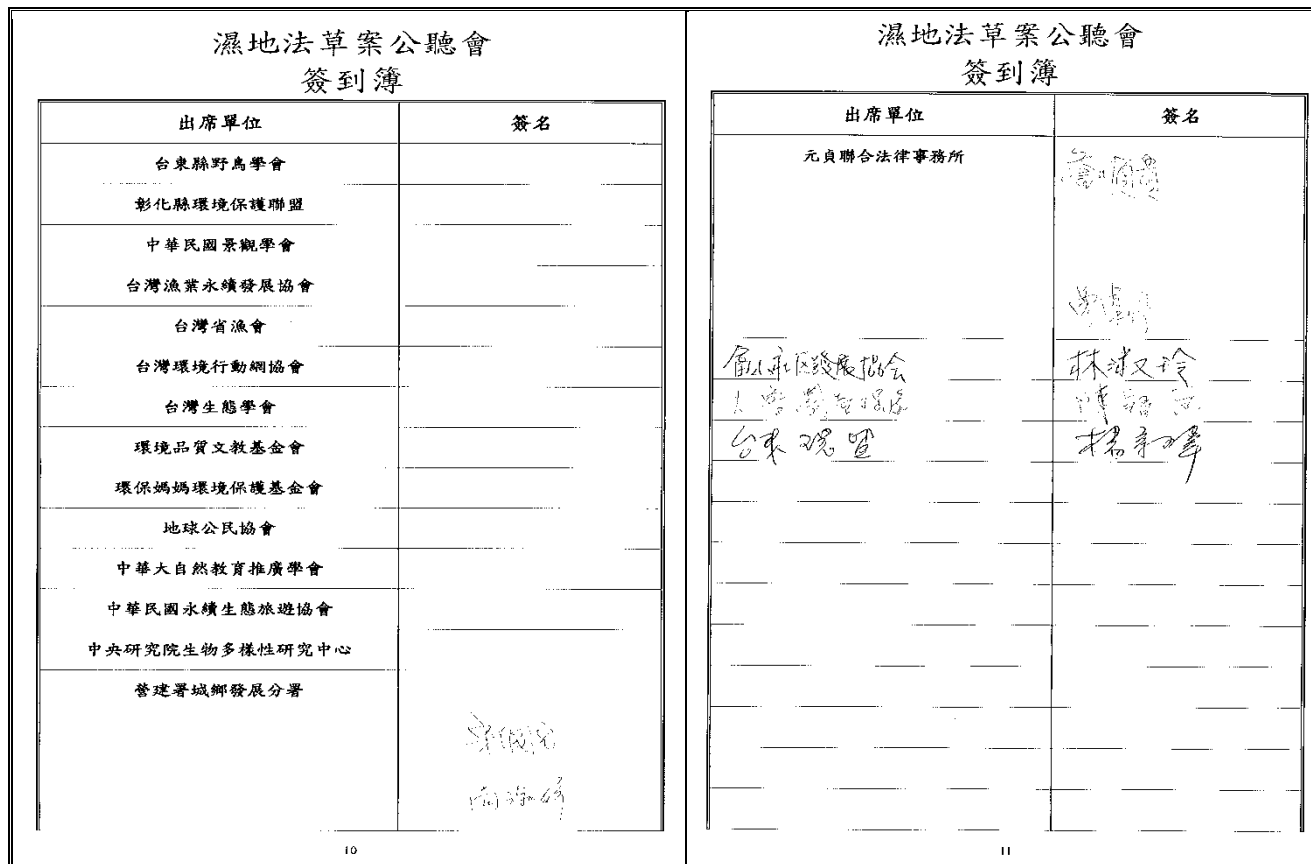 濕地法草案公聽會
簽到簿
出席單位 簽名
台東縣野鳥學會
彰化縣環境保護聯盟
中華民國景觀學會
台灣漁業永續發展協會
台灣省漁會
台灣環境行動網協會
台灣生態學會
環境品質文教基金會
環保媽媽環境保護基金會
地球公民協會
中華大自然教育推廣學會
中華民國永續生態旅遊協會
中央研究院生物多樣性研究中心
營建署城鄉發展分署
10
濕地法草案公聽會
簽到簿
出席單位 簽名
元貞聯合法律事務所
社区發展協会 林淑玲
台東
11